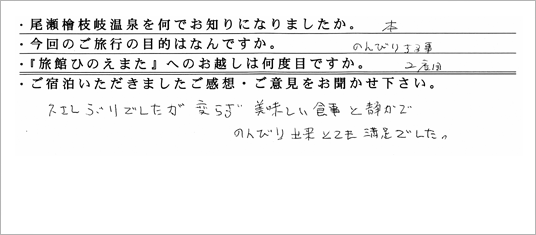 ・尾瀬檜枝岐温泉を何でお知りになりましたか。 本
・今回のご旅行の目的はなんですか。 のんびりする事
・『旅館ひのえまた』へのお越しは何度目ですか。 2度目
・ご宿泊いただきましたご感想・ご意見をお聞かせ下さい。
久しぶりでしたが 変らず 美味しい食事と静かで
のんびり出来とても満足でした。